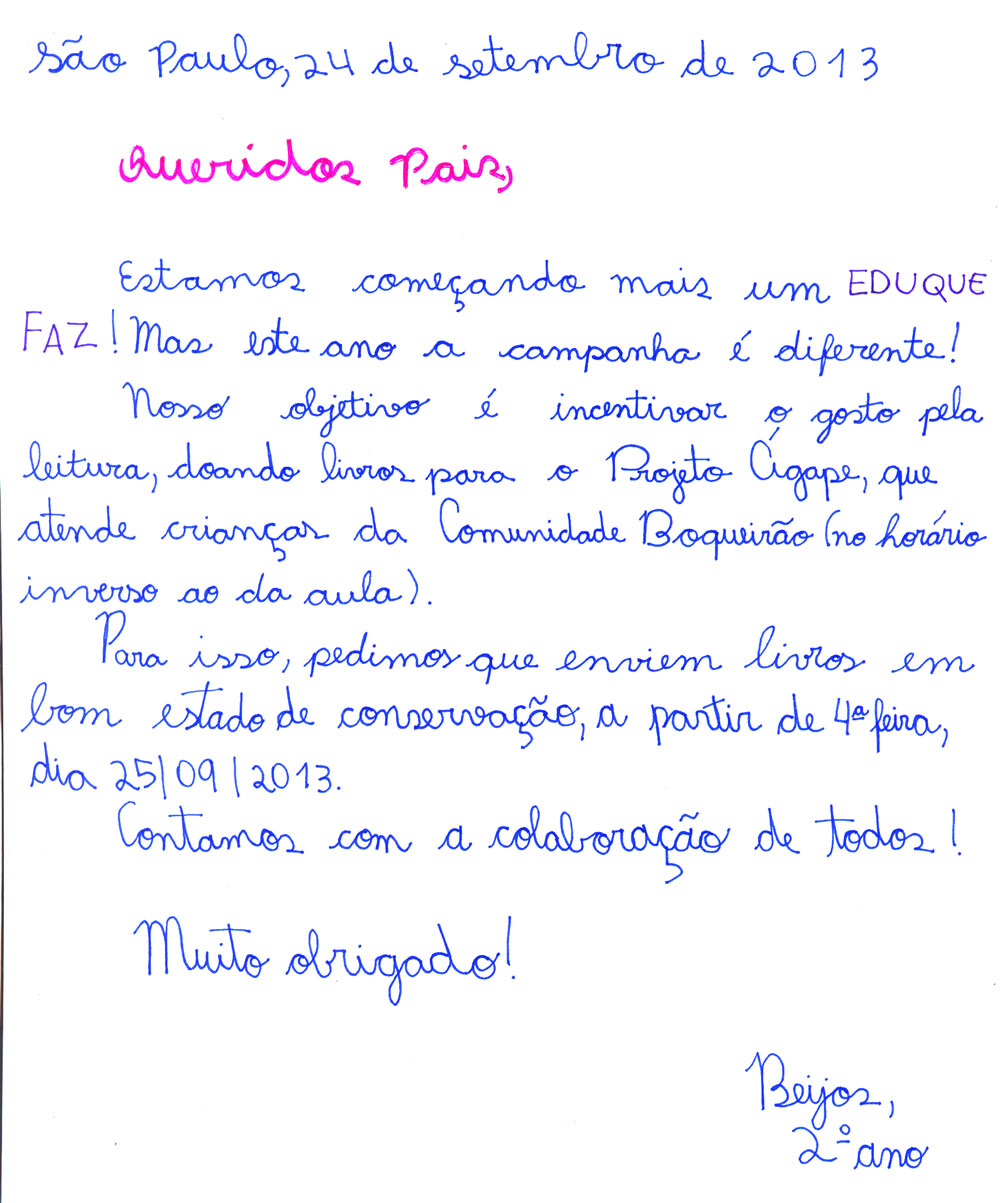 São Paulo, 24 de setembro de 2013
Queridos Pais,
Estamos começando mais um EDUQUE
FAZ! Mas este ano a campanha é diferente!
Nosso objetivo é incentivar o gosto pela
leitura, doando livros para o Projeto Ágape, que
atende crianças da Comunidade Boqueirão (no horário
inverso ao da aula).
Para isso, pedimos que enviem livros em
bom estado de conservação, a partir de 4ª feira,
dia 25/09/2013.
Contamos com a colaboração de todos!
Muito obrigado!
Beijos,
2º ano